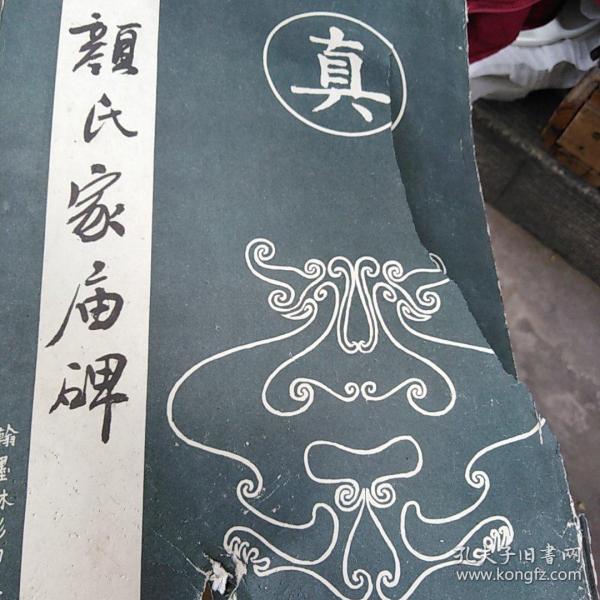 真
顏氏家庙碑
翰墨林影印
孔夫子旧書网
www.kongfz.com